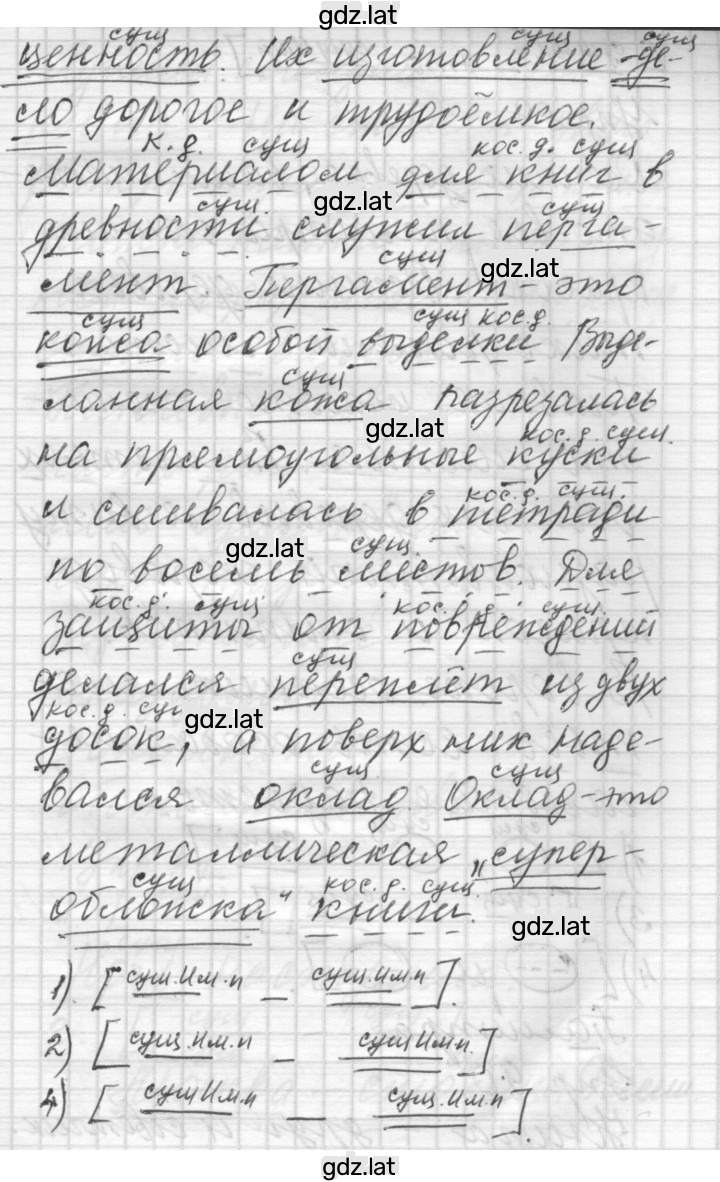 gdz.lat
сущ сущ сущ
ценность. Их изготовление - де-
ло дорогое и трудоёмкое.
к. д. сущ кос. д. сущ
Материалом для книг в
gdz.lat
сущ. сущ.
древности служил перга-
сущ
gdz.lat
мент Пергамент - это
сущ сущ кос. д.
кожа особой выделки Выде-
сущ
ланная кожа разрезалась
gdz.lat
кос. д. сущ.
на прямоугольные куски
кос. д. сущ.
и сшивалась в тетради
gdz.lat
сущ.
по восемь листов. Для
кос. д. сущ кос. д. сущ.
защиты от повреждений
сущ
делался переплёт из двух
кос. д. сущ
gdz.lat
досок, а поверх них наде-
сущ. сущ
вался оклад. Оклад - это
металлическая „супер-
сущ кос. д. сущ.
обложка“ книги.
gdz.lat
1) [сущ. Им. п – сущ. Им. п].
2) [сущ. Им. п – сущ Им. п.]
4) [сущ Им. п – сущ. Им. п].
gdz.lat